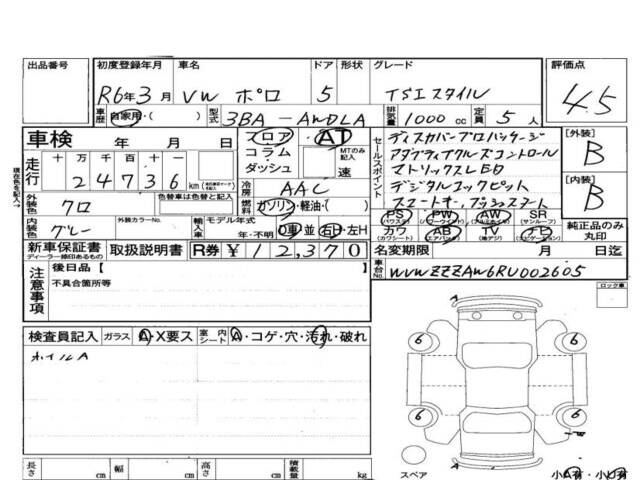 出品番号 初度登録年月 車名 ドア 形状 グレード 評価点
R6年3月 VW ポロ 5 TSIスタイル 4.5
車歴 自家用・( ) 型式 3BA-AWDLA 排気量 1000cc 定員 5人
車検 年 月 日 フロア AT
コラム MTのみ記入
ダッシュ 速
走行 十万千百十一
24736km
現在色を記入→
冷房 AAC
外装色 クロ 色替車は色替と記入
燃料 ガソリン・軽油・( )
内装色 グレー 外装カラーNo.
輸入車 モデル年式 年・不明 D車 並 右H・左H
セールスポイント
ディスカバープロパッケージ
アダプティブクルーズコントロール
マトリックスLED
デジタルコックピット
スマートキー,プッシュスタート
[外装] B
[内装] B
PS PW AW SR
(パワステ) (パワーウインド) (アルミホイル) (サンルーフ)
カワ AB TV ナビ
(カワシート) (エアバック) (地デジ) (ナビゲーション)
純正品のみ丸印
新車保証書 取扱説明書 R券 ¥12,370
ディーラー捺印あるもの
名変期限 月 日迄
注意事項 後日品【
不具合箇所等
車台No. WVWZZZAW6RU002605
ロック車
検査員記入 ガラス A・X要ス 室内シート A・コゲ・穴・汚れ・破れ
ホイルA
A
6 6
6 6
スペア
小A有・小U有
長さ cm 幅 cm 高さ cm 積載量 kg